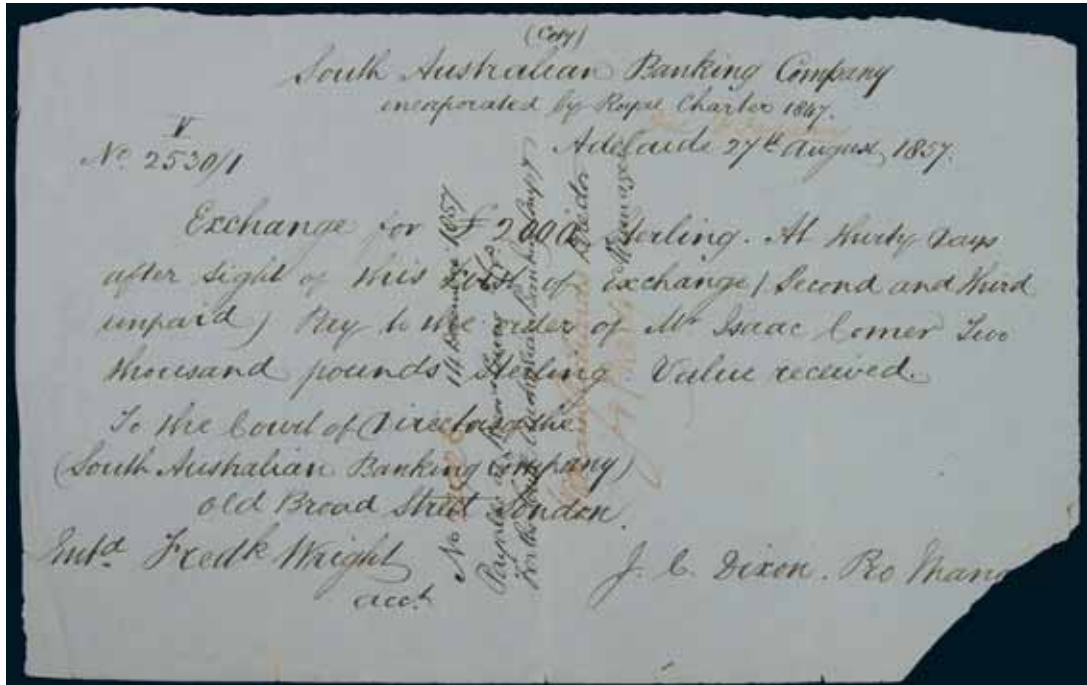 (Copy)
South Australian Banking Company
incorporated by Royal Charter 1847.
Adelaide 27th August, 1857.
V
No. 2530/1
Exchange for £2000 Sterling. At thirty days
after sight of this first of exchange (Second and third
unpaid) Pay to the order of Mr Isaac Comer Two
thousand pounds Sterling Value received.
To the Court of Directors of the
(South Australian Banking Company)
Old Broad Street London.
Entd. Fredk Wright
acct
J. C. Dixon. Pro Mana
No 14 December 1857
For the South Australian Banking Compy
Director
Manager